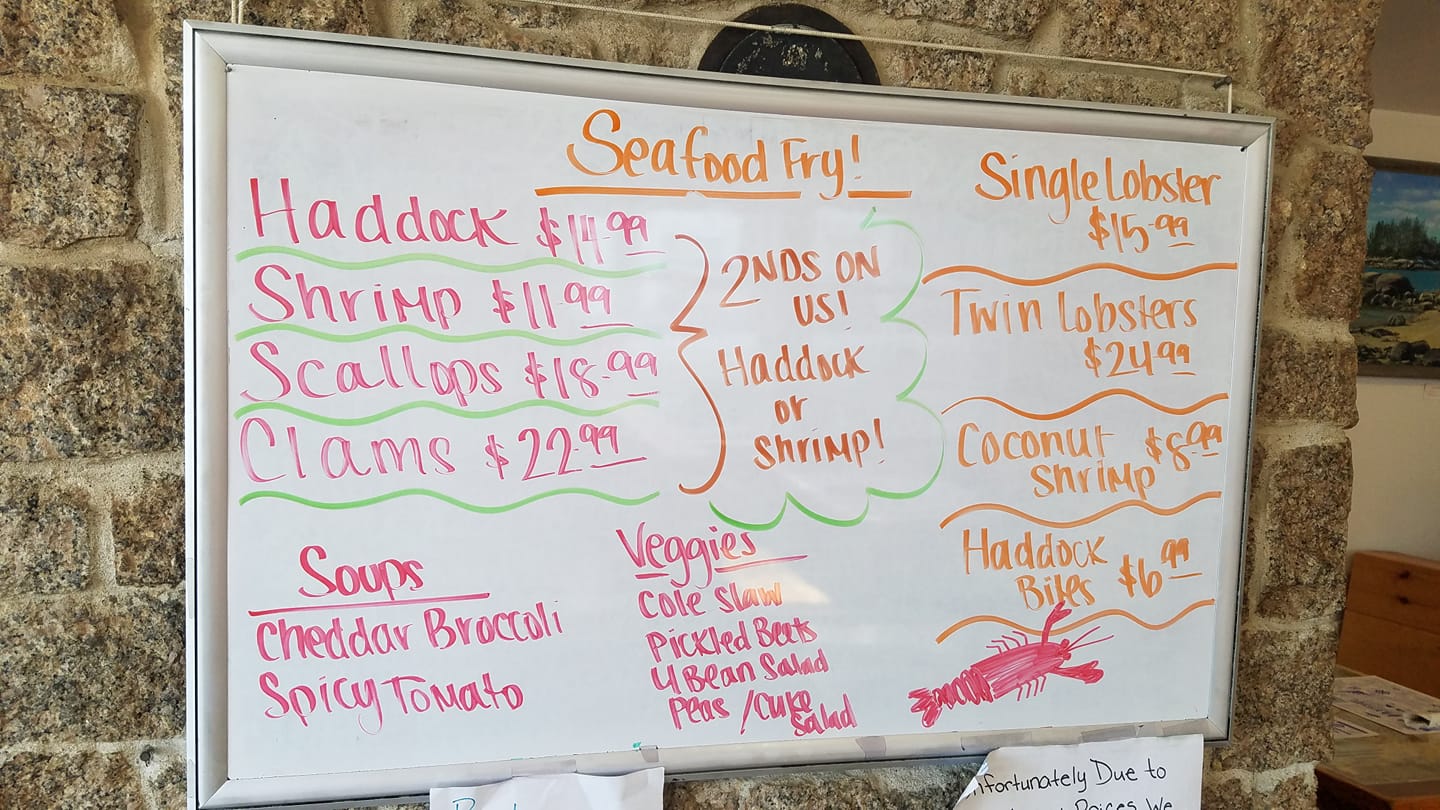 Seafood Fry!
Haddock $14.99
Shrimp $11.99
Scallops $18.99
Clams $22.99
2NDS ON
US!
Haddock
or
Shrimp!
Single Lobster
$15.99
Twin Lobsters
$24.99
Coconut $8.99
Shrimp
Haddock
Bites $6.99
Soups
Cheddar Broccoli
Spicy Tomato
Veggies
Cole Slaw
Pickled Beets
4 Bean Salad
Peas / Cuke
Salad
nfortunately Due to
Prices We